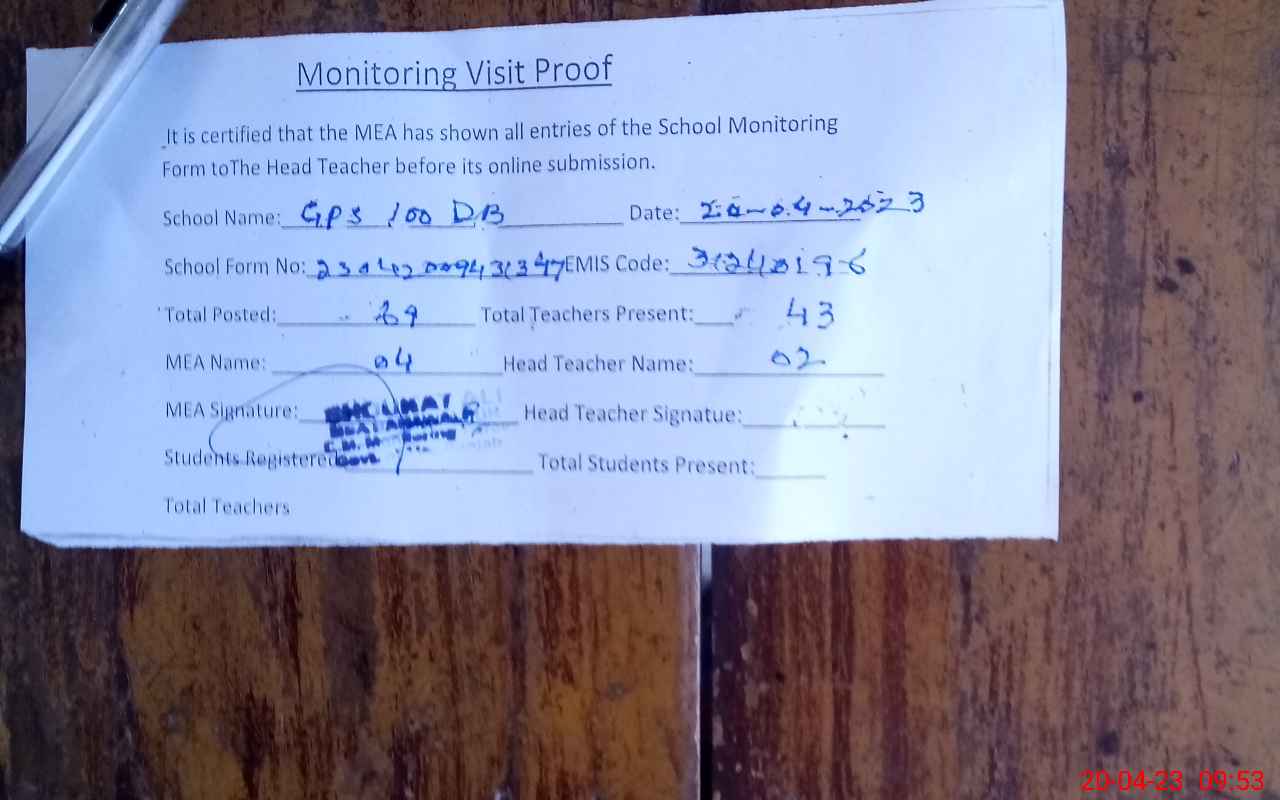 Monitoring Visit Proof
It is certified that the MEA has shown all entries of the School Monitoring
Form toThe Head Teacher before its online submission.
School Name: GPS 100 DB Date: 20-04-2023
School Form No: EMIS Code: 31240196
Total Posted: 69 Total Teachers Present: 43
MEA Name: 04 Head Teacher Name: 02
MEA Signature: Head Teacher Signatue:
Students Registered Total Students Present:
Total Teachers
20-04-23 09:53